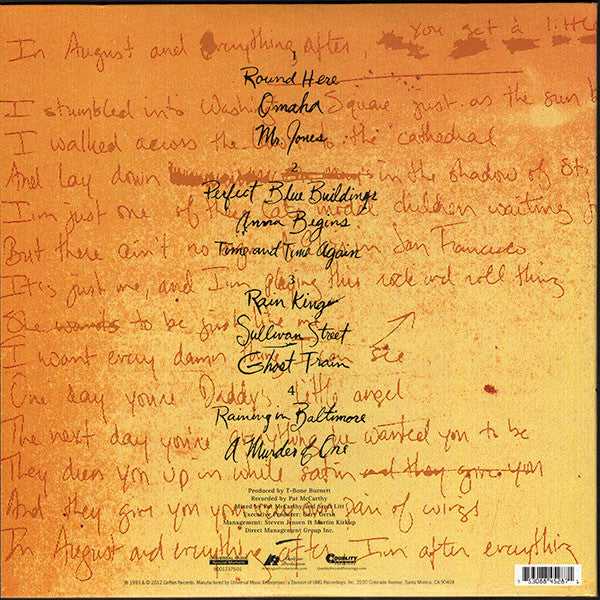 In August and everything after, You get a little
1
Round Here
I stumbled into Washington Square just as the sun b
Omaha
I walked across the to the cathedral
Mr. Jones
2
And lay down in the shadow of St.
Perfect Blue Buildings
I'm just one of these model children waiting f
Anna Begins
But there ain't no in San Francisco
Time and Time Again
3
It's just me, and I'm playing this rock and roll thing
Rain King
She wants to be just like me
Sullivan Street
I want every damn thing I can see
Ghost Train
4
One day you're Daddy's little angel
Raining in Baltimore
The next day you're everything he wanted you to be
A Murder of One
They dress you up in white satin and they give you
Produced by T-Bone Burnett
Recorded by Pat McCarthy
Mixed by Pat McCarthy and Scott Litt
Executive Producer: Gary Gersh
Management: Steven Jensen & Martin Kirkup
Direct Management Group Inc.
And they give you your own pair of wings
In August and everything after I'm after everything
Special Markets
B001237501
AnalogueProductions.com
QUALITY
QualityRecordPressings.com
℗ 1993 & © 2012 Geffen Records, Manufactured by Universal Music Enterprises, a Division of UMG Recordings, Inc. 2220 Colorado Avenue, Santa Monica, CA 90404
7 53088 45287 1